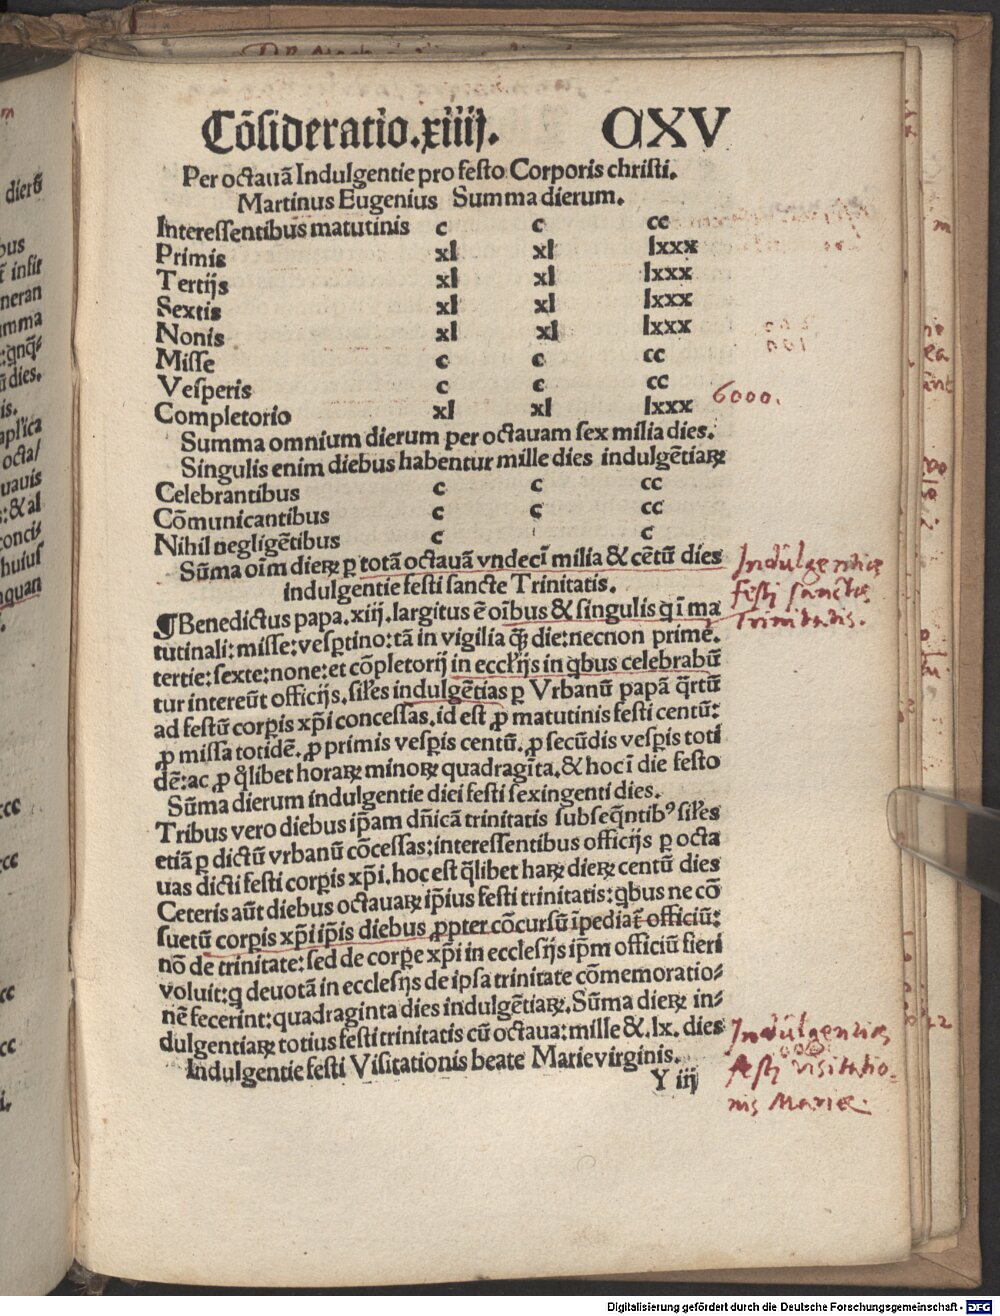 Cōsideratio.xiiij. CXV
Per octauā Indulgentie pro festo Corporis christi.
Martinus Eugenius Summa dierum.
Interessentibus matutinis c c cc
Primis xl xl lxxx
Tertijs xl xl lxxx
Sextis xl xl lxxx
Nonis xl xl lxxx
Misse c c cc
Vesperis c c cc
Completorio xl xl lxxx
6000.
Summa omnium dierum per octauam sex milia dies.
Singulis enim diebus habentur mille dies indulgētiaꝝ
Celebrantibus c c cc
Cōmunicantibus c c cc
Nihil negligētibus c c
Sūma oīm dieꝝ ꝑ totā octauā vndecī milia & cētū dies
indulgentie festi sancte Trinitatis.
Indulgentiae
festj sanctae
Trinitatis.
¶Benedictus papa.xiij.largitus ē oībus & singulis q ī ma
tutinali: misse: vesꝑtino: tā in vigilia q̄ꝫ die: necnon prime.
tertie: sexte: none: et cōpletorij in eccl'ijs in qbus celebrabū
tur intereūt officijs. sil'es indulgētias ꝑ Vrbanū papā q̄rtū
ad festū corꝑis xp̄i concessas. id est ꝓ matutinis festi centū:
ꝓ missa totidē. ꝓ primis vesꝑis centū. ꝓ secūdis vesꝑis toti
dē: ac ꝓ qlibet horaꝝ minoꝝ quadragīta. & hoc ī die festo
Sūma dierum indulgentie diei festi sexingenti dies.
Tribus vero diebus ip̄am dn̄icā trinitatis subseq̄ntibꝰ sil'es
etiā ꝑ dictū vrbanū cōcessas: interessentibus officijs ꝑ octa
uas dicti festi corꝑis xp̄i. hoc est qlibet haꝝ dieꝝ centū dies
Ceteris aūt diebus octauaꝝ ip̄ius festi trinitatis: qbus ne cō
suetū corꝑis xp̄i ip̄is diebus ꝓpter cōcursū īpediat̄ officiū:
nō de trinitate: sed de corꝑe xp̄i in ecclesijs ip̄m officiū fieri
voluit: q deuotā in ecclesijs de ipsa trinitate cōmemoratio⸗
nē fecerint: quadraginta dies indulgētiaꝝ. Sūma dieꝝ in⸗
dulgentiaꝝ totius festi trinitatis cū octaua: mille &. lx. dies
Indulgentie festi Visitationis beate Marie virginis.
Y iij
Indulgentiae
festj visitatio⸗
nis Mariae.
Digitalisierung gefördert durch die Deutsche Forschungsgemeinschaft - DFG